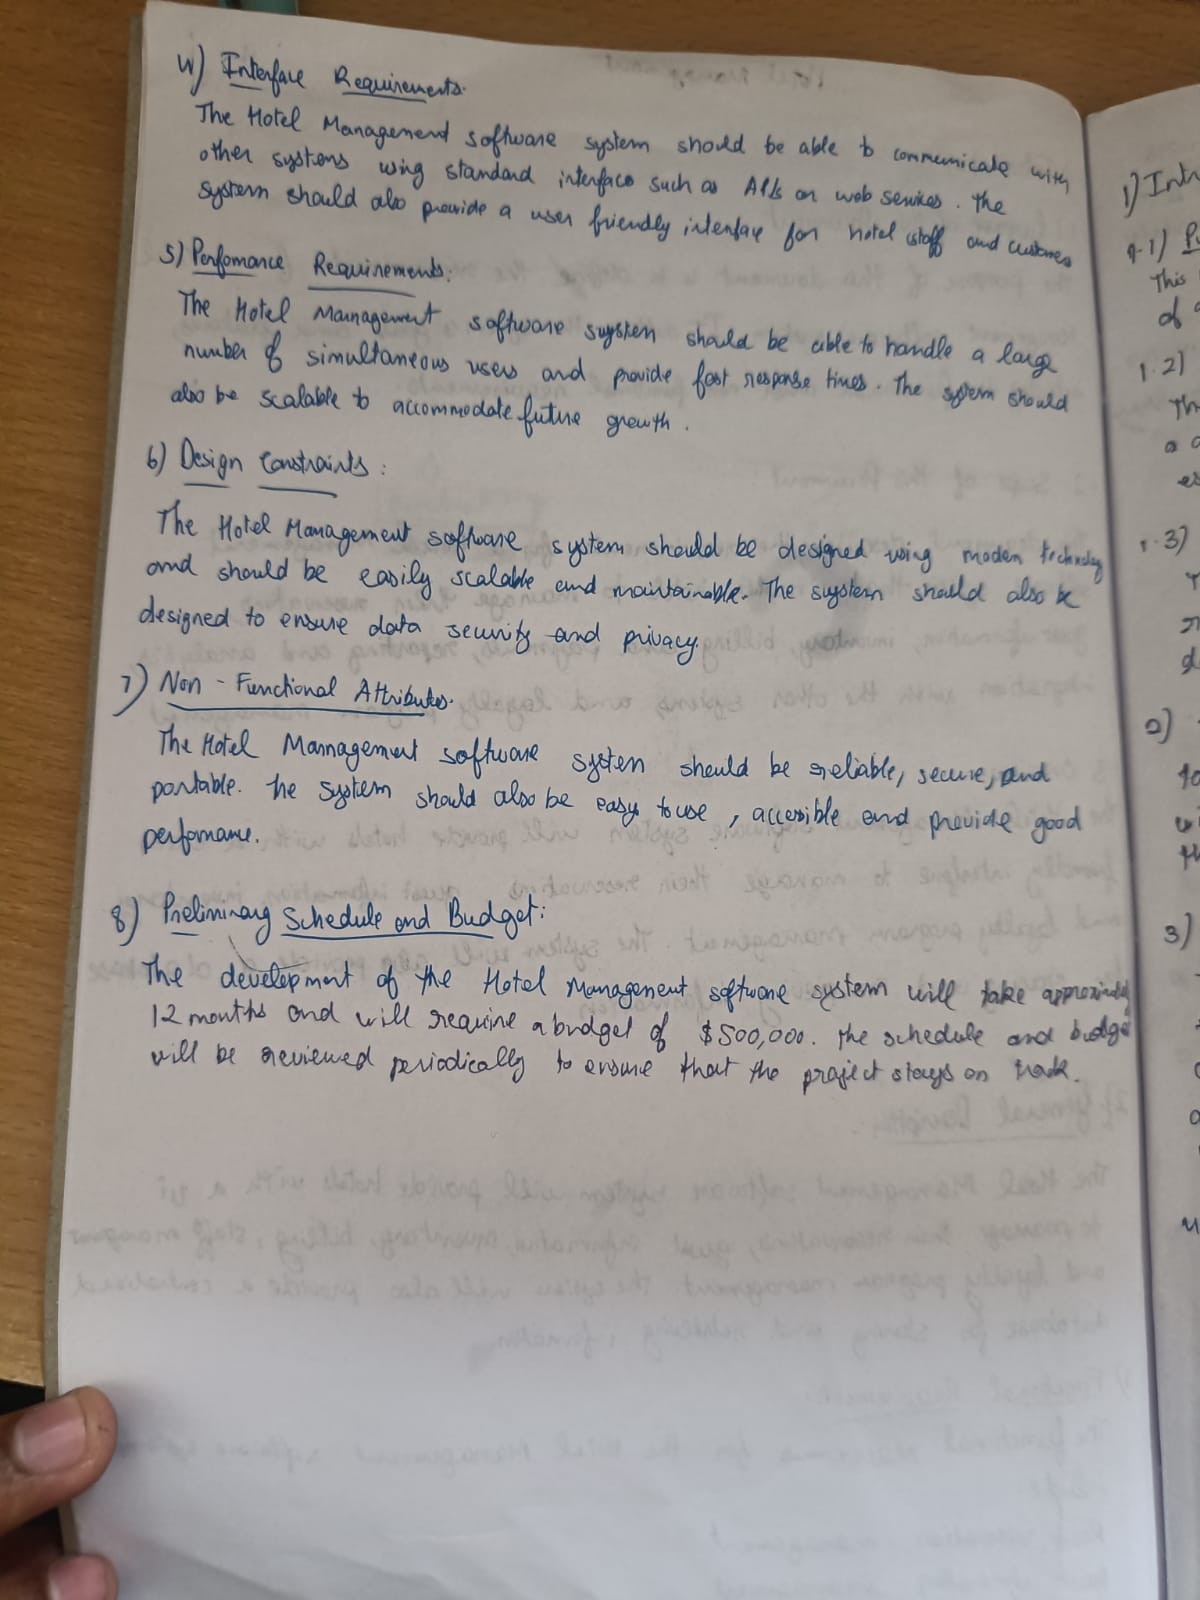 4) Interface Requirements.
The Hotel Management software system should be able to communicate with
other systems using standard interfaces such as APIs or web services. The
system should also provide a user friendly interface for hotel staff and customers
5) Perfomance Requirements:
The Hotel Management software system should be able to handle a large
number of simultaneous users and provide fast response times. The system should
also be scalable to accommodate future growth.
6) Design Constraints:
The Hotel Management software system should be designed using modern technology
and should be easily scalable and maintainable. The system should also be
designed to ensure data security and privacy.
7) Non-Functional Attributes.
The Hotel Management software system should be reliable, secure, and
portable. The system should also be easy to use, accessible and provide good
performance.
8) Preliminary Schedule and Budget:
The development of the Hotel Management software system will take approximately
12 months and will require a budget of $500,000. The schedule and budget
will be reviewed periodically to ensure that the project stays on track.
1) Intr
1.2)
This
of
Th
1.3)
2)
3)